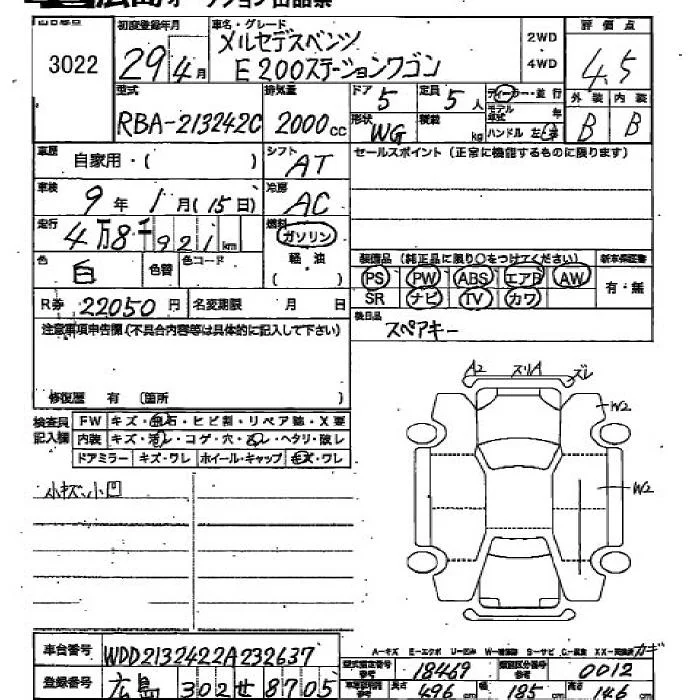 オークション出品票
3022
初度登録年月
29年 4月
車名・グレード
メルセデスベンツ
E200ステーションワゴン
2WD
4WD
評価点
4.5
型式
RBA-213242C
排気量
2000cc
ドア 5
形状 WG
定員 5人
積載 kg
ディーラー・並行
モデル年式 年
ハンドル 左
外装 内装
B B
車歴 自家用・( )
シフト AT
セールスポイント(正常に機能するものに限ります)
車検 9年 1月(15日)
冷房 AC
走行 4万8千921km
燃料 ガソリン
軽油
( )
色 白 色替 色コード
装備品(純正品に限り○をつけてください)
新車保証書
PS PW ABS エアB AW
SR ナビ TV カワ
有・無
R券 22050円 名変期限 月 日
後日品
スペアキー
注意事項申告欄(不具合内容等は具体的に記入して下さい)
修復歴 有 (箇所 )
検査員記入欄
FW キズ・飛石・ヒビ割・リペア跡・X要
内装 キズ・汚レ・コゲ・穴・スレ・ヘタリ・破レ
ドアミラー キズ・ワレ ホイール・キャップ キズ・ワレ
小キズ、小凹
A2 スリA ズレ
W2
W2
車台番号 WDD2132422A232637
登録番号 広島 302 せ 8705
A-キズ E-エクボ U-凹み S-サビ C-腐食 カギ
型式指定番号 18469 類別区分番号 0012
長さ 496cm 幅 185cm 高さ 146cm